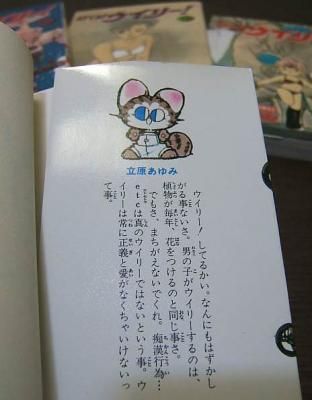 ウイリー!
立原あゆみ
ウイリー! してるかい。なんにもはずかし
がる事ないさ。男の子がウイリーするのは、
植物が毎年、花をつけるのと同じ事さ。
でもさ、まちがえないでくれ。痴漢行為…
etcは真のウイリーではないという事。ウ
イリーは常に正義と愛がなくちゃいけないっ
て事。